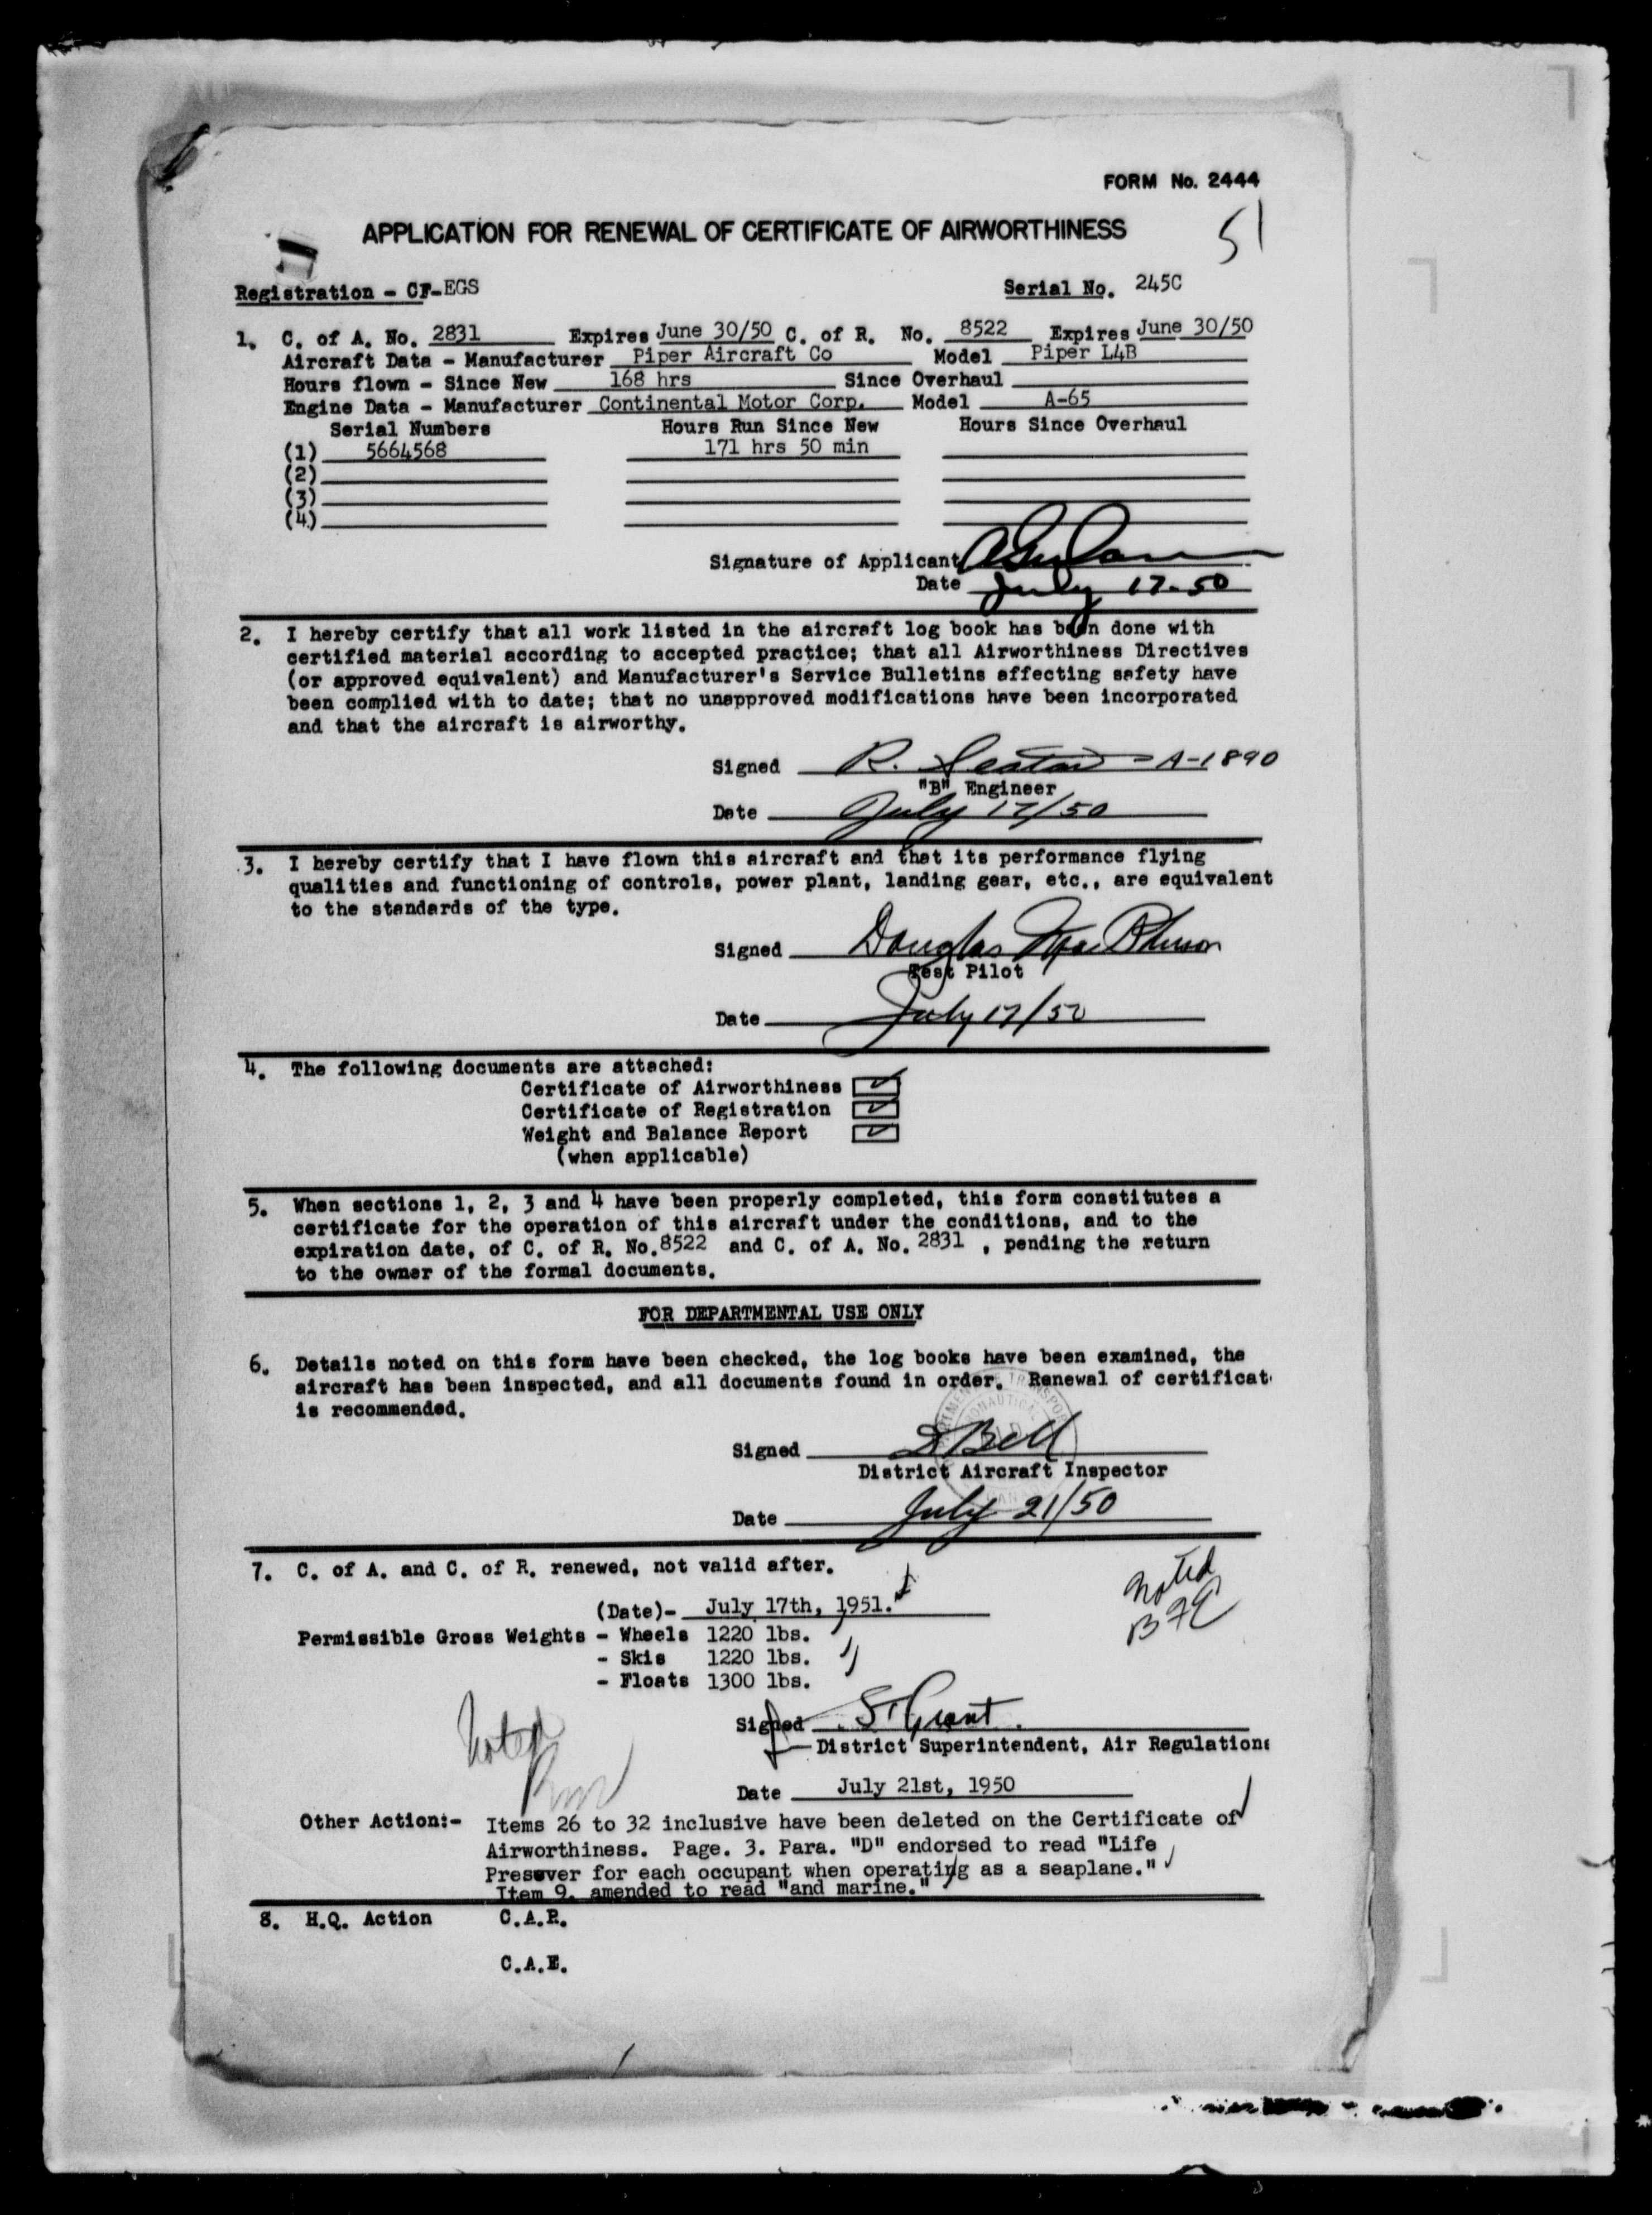 FORM No. 2444
51
APPLICATION FOR RENEWAL OF CERTIFICATE OF AIRWORTHINESS
Registration - CF-EGS Serial No. 245C
1. C. of A. No. 2831 Expires June 30/50 C. of R. No. 8522 Expires June 30/50
Aircraft Data - Manufacturer Piper Aircraft Co Model Piper L4B
Hours flown - Since New 168 hrs Since Overhaul
Engine Data - Manufacturer Continental Motor Corp. Model A-65
Serial Numbers Hours Run Since New Hours Since Overhaul
(1) 5664568 171 hrs 50 min
(2)
(3)
(4)
Signature of Applicant
Date July 17-50
2. I hereby certify that all work listed in the aircraft log book has been done with
certified material according to accepted practice; that all Airworthiness Directives
(or approved equivalent) and Manufacturer's Service Bulletins affecting safety have
been complied with to date; that no unapproved modifications have been incorporated
and that the aircraft is airworthy.
Signed R. Seaton - A-1890
"B" Engineer
Date July 17/50
3. I hereby certify that I have flown this aircraft and that its performance flying
qualities and functioning of controls, power plant, landing gear, etc., are equivalent
to the standards of the type.
Signed Douglas
Test Pilot
Date July 17/50
4. The following documents are attached:
Certificate of Airworthiness
Certificate of Registration
Weight and Balance Report
(when applicable)
5. When sections 1, 2, 3 and 4 have been properly completed, this form constitutes a
certificate for the operation of this aircraft under the conditions, and to the
expiration date, of C. of R. No. 8522 and C. of A. No. 2831 , pending the return
to the owner of the formal documents.
FOR DEPARTMENTAL USE ONLY
6. Details noted on this form have been checked, the log books have been examined, the
aircraft has been inspected, and all documents found in order. Renewal of certificat
is recommended.
Signed Bell
District Aircraft Inspector
Date July 21/50
7. C. of A. and C. of R. renewed, not valid after.
Noted
(Date)- July 17th, 1951.
Permissible Gross Weights - Wheels 1220 lbs.
- Skis 1220 lbs.
- Floats 1300 lbs.
Noted
Signed S Grant
District Superintendent, Air Regulations
Date July 21st, 1950
Other Action:- Items 26 to 32 inclusive have been deleted on the Certificate of
Airworthiness. Page. 3. Para. "D" endorsed to read "Life
Presever for each occupant when operating as a seaplane."
Item 9. amended to read "and marine."
8. H.Q. Action C.A.R.
C.A.E.